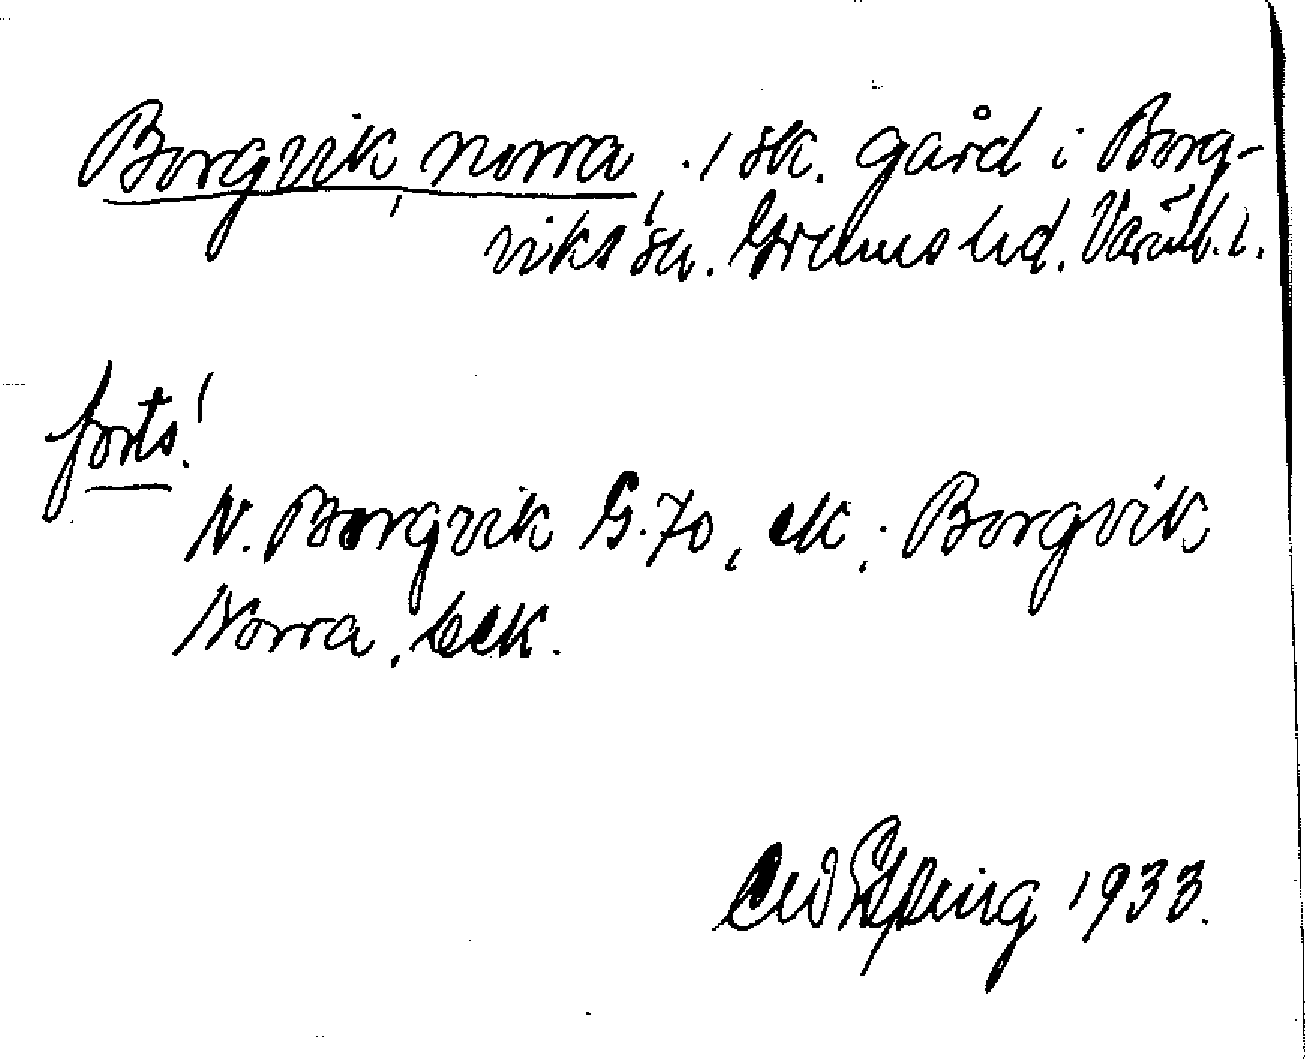 Borgvik, norra, 1 sk. gård i Borg-
viks sn. Grums hd. Värml. l.
forts!
N. Borgvik G.70, ek.; Borgvik
Norra, beck.
1933.